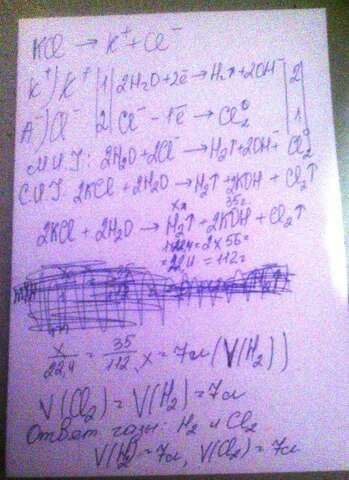 KCl → K⁺ + Cl⁻
K⁺) K⁺ |1| 2H₂O+2ē → H₂↑+2OH⁻ |2
A⁻) Cl⁻ |2| Cl⁻ - 1ē → Cl₂⁰ |1
М.И.У: 2H₂O+2Cl⁻ → H₂↑+2OH⁻ Cl₂⁰
С.И.У: 2KCl + 2H₂O → H₂↑ 2KOH + Cl₂↑
xл 35г
2KCl + 2H₂O → H₂↑+2KOH + Cl₂↑
1×22,4= 2×56=
=22,4 =112г
x/22,4 = 35/112, x = 7л (V(H₂))
V(Cl₂) = V(H₂) = 7л
Ответ газы: H₂ и Cl₂
V(H₂) = 7л, V(Cl₂) = 7л